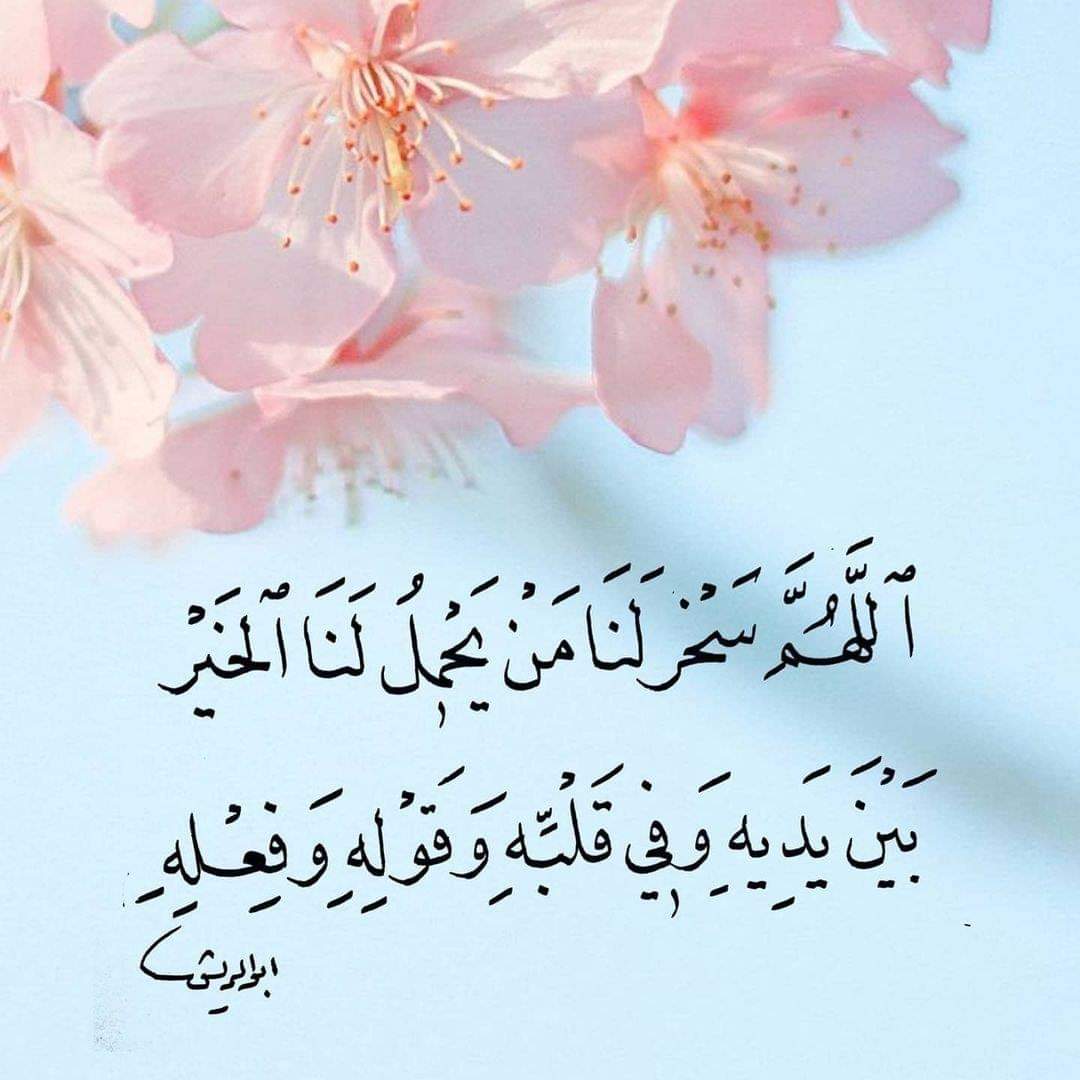 ٱللَّهُمَّ سَخِّرْ لَنَا مَنْ يَحْمِلُ لَنَا ٱلْخَيْرَ
بَيْنَ يَدَيهِ وَفِي قَلْبِهِ وَقَوْلِهِ وَفِعْلِهِ
ابوالريش